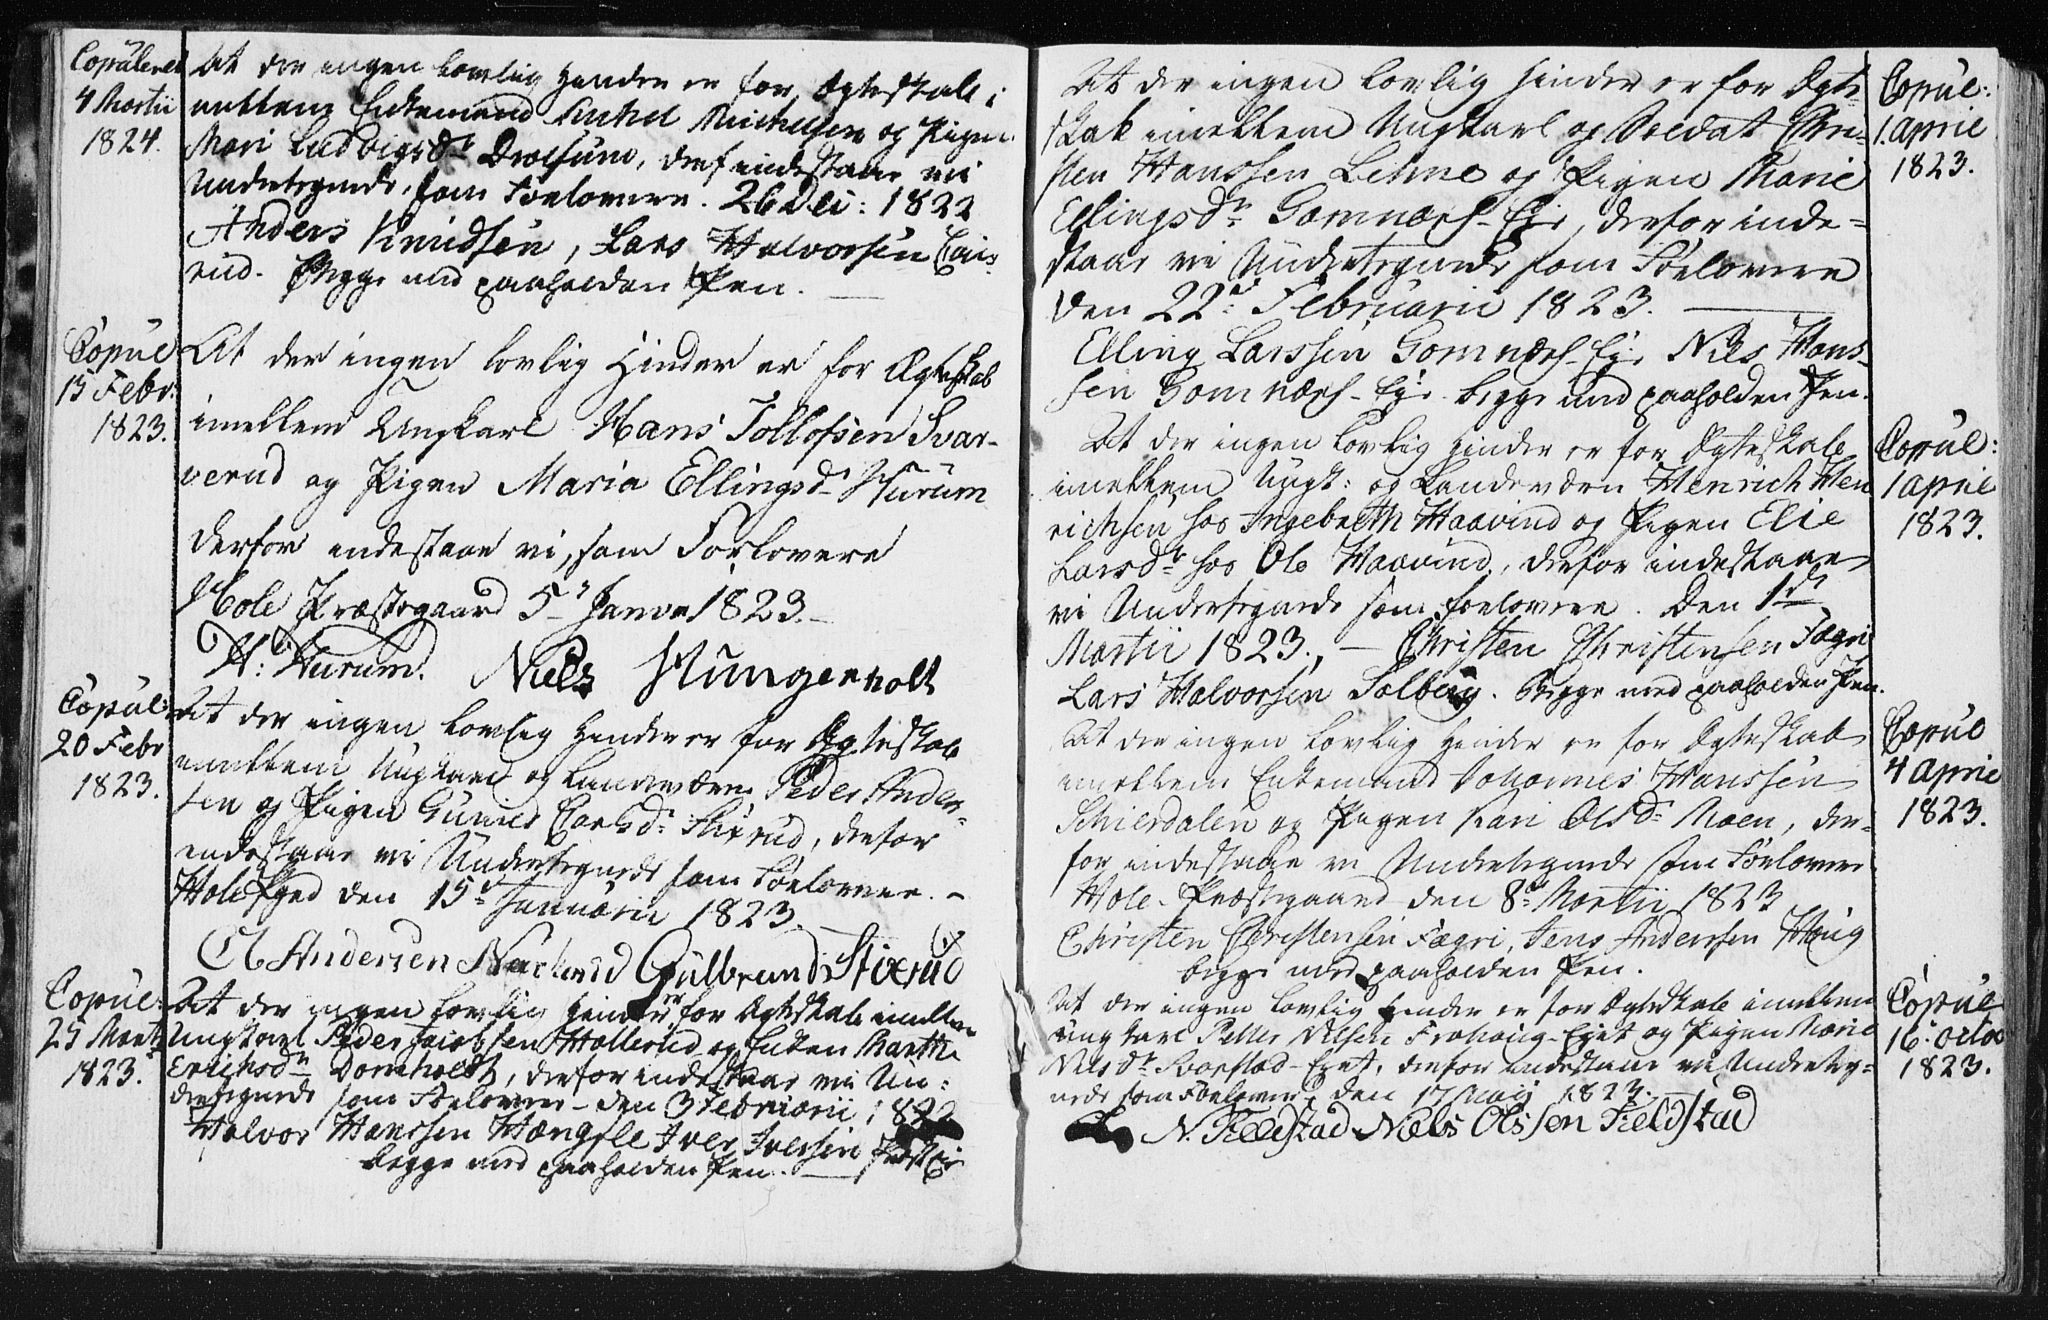 Copuleret
4 Martii
1824.
At der ingen lovlig Hinder er for Ægteskab i
mellem Enkemand Michel Michelsen og Pigen
Mari Ludvigsdr Drolsum, derf indestaae vi
Undertegnede, som Forlovere. 26 Dec: 1822
Anders Knudsen, Lars Halvorsen
rud. Begge med paaholden Pen.
Copul
15 Febr:
1823.
At der ingen lovlig Hinder er for Ægteskab
imellem Ungkarl Hans Tollofsen Svar-
verud og Pigen Maria Ellingsd Hurum
derfor indestaae vi, som Forlovere
Hole Præstegaard 5 Janvr 1823.
H: Hurum. Niels Hungerholt
Copul:
20 Febr
1823.
At der ingen lovlig Hinder er for Ægteskab
imellem Ungkarl og Landeværn Peder Ander-
sen og Pigen Gunild Carlsdr Stixrud, derfor
indestaae vi Undertegnede som Forlovere. -
Hole Pgrd den 15d Januarii 1823.
A Andersen Gulbrand Stixrud
Copul:
25 Marti
1823.
At der ingen lovlig Hinder er for Ægteskab imellem
Ungkarl Peder Jacobsen Hollerud og Enken Marthe
Erichsdr Domholdt, derfor indestaae vi Un-
dertegnede som Forlovere - den 3 Februarii 1822
Halvor Hanssen Hængsle Iver Iversen
begge med paaholden Pen.
At der ingen lovlig Hinder er for Ægte-
skab imellem Ungkarl og Soldat Chri-
sten Hanssen Lehne og Pigen Marie
Ellingsdr Gomnæs-Eje, derfor inde-
staae vi Undertegnede som Forlovere
den 22d Februarii 1823.
Elling Larssen Gomnæs-Eje Niels Hans-
sen Gomnæs-Eje begge med paaholden Pen.
Copul:
1. April
1823.
At der ingen lovlig Hinder er for Ægteskab
imellem Ungk: og Landeværn Henrich Hen
richsen hos Ingebreth Haavind og Pigen Elie
Larsdr hos Ole Haavind, derfor indestaae
vi Undertegnede som Forlovere. Den 1d
Martii 1823., - Christen Christensen Fægri
Lars Halvorsen Solberg. Begge med paaholden Pen.
Copul:
1 April
1823.
At der ingen lovlig Hinder er for Ægteskab
imellem Enkemand Johannes Hanssen
Schierdalen og Pigen Kari Olsdr Moen, der-
for indestaae vi Undertegnede som Forlovere
Hole-Præstegaard den 8d Martii 1823
Christen Christensen Fægri, Jens Anderssen Houg
begge med paaholden Pen.
Copul
4 April
1823.
At der ingen lovlig Hinder er for Ægteskab imellem
Ungkarl Petter Nilsen Frohoug-Ejet og Pigen Marie
Nielsdr Svarstad-Ejet, derfor indestaae vi Underteg-
nede som Forlovere, den 17 Maij 1823.
N. Fieldstad Niels Olssen Fieldstad
Copul
16. Octob
1823.